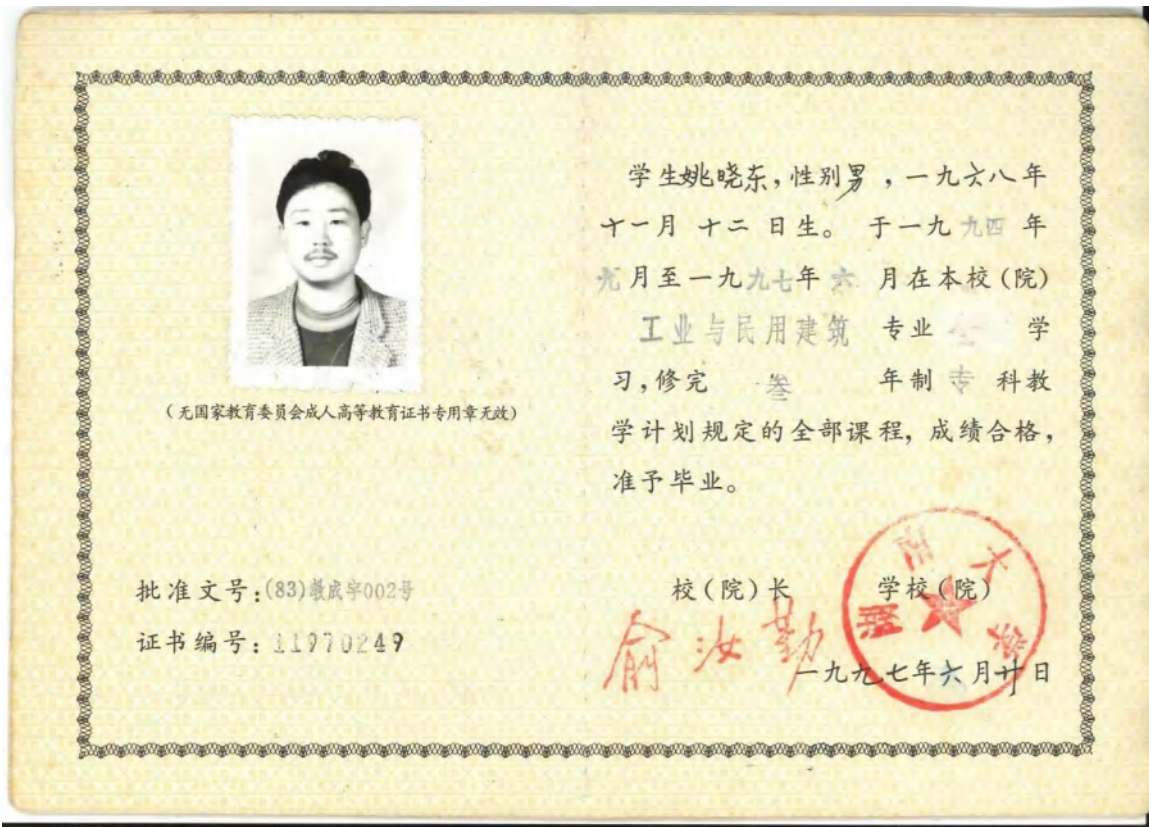 (无国家教育委员会成人高等教育证书专用章无效)
批准文号:(83)教成字002号
证书编号:11970249
学生姚晓东,性别男,一九六八年
十一月十二日生。于一九九四年
九月至一九九七年六月在本校(院)
工业与民用建筑 专业 学
习,修完 叁 年制 专 科教
学计划规定的全部课程,成绩合格,
准予毕业。
校(院)长 学校(院)
俞汝勤
湖南大学
一九九七年六月廿日